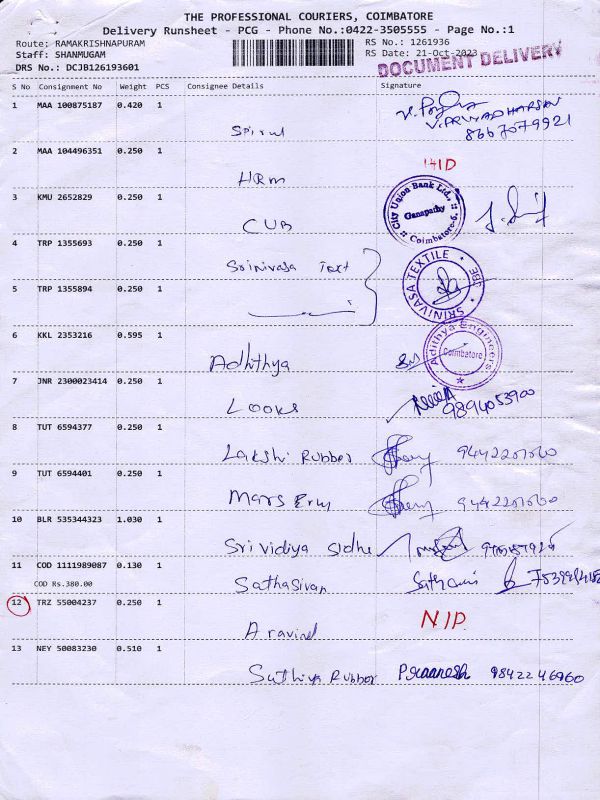 THE PROFESSIONAL COURIERS, COIMBATORE
Delivery Runsheet - PCG - Phone No.:0422-3505555 - Page No.:1
Route: RAMAKRISHNAPURAM
RS No.: 1261936
Staff: SHANMUGAM
RS Date: 21-Oct-2023
DRS No.: DCJB126193601
DOCUMENT DELIVERY
S No Consignment No Weight PCS Consignee Details Signature
1 MAA 100875187 0.420 1
8667079921
2 MAA 104496351 0.250 1
HRM
3 KMU 2652829 0.250 1
CUB
City Union Bank Ltd., Ganapathy Coimbatore-6.
4 TRP 1355693 0.250 1
Srinivasa Text
SRINIVASA TEXTILE
5 TRP 1355894 0.250 1
6 KKL 2353216 0.595 1
Adhithya
Adithya Engineers Coimbatore
7 JNR 2300023414 0.250 1
Looks 9894053900
8 TUT 6594377 0.250 1
Lakshi Rubber
9 TUT 6594401 0.250 1
Mars
10 BLR 535344323 1.030 1
Sri vidiya
11 COD 1111989087 0.130 1
COD Rs.380.00
Sathasivan
12 TRZ 55004237 0.250 1
Aravind NIP
13 NEY 50083230 0.510 1
Sathiya Rubber 9842246960